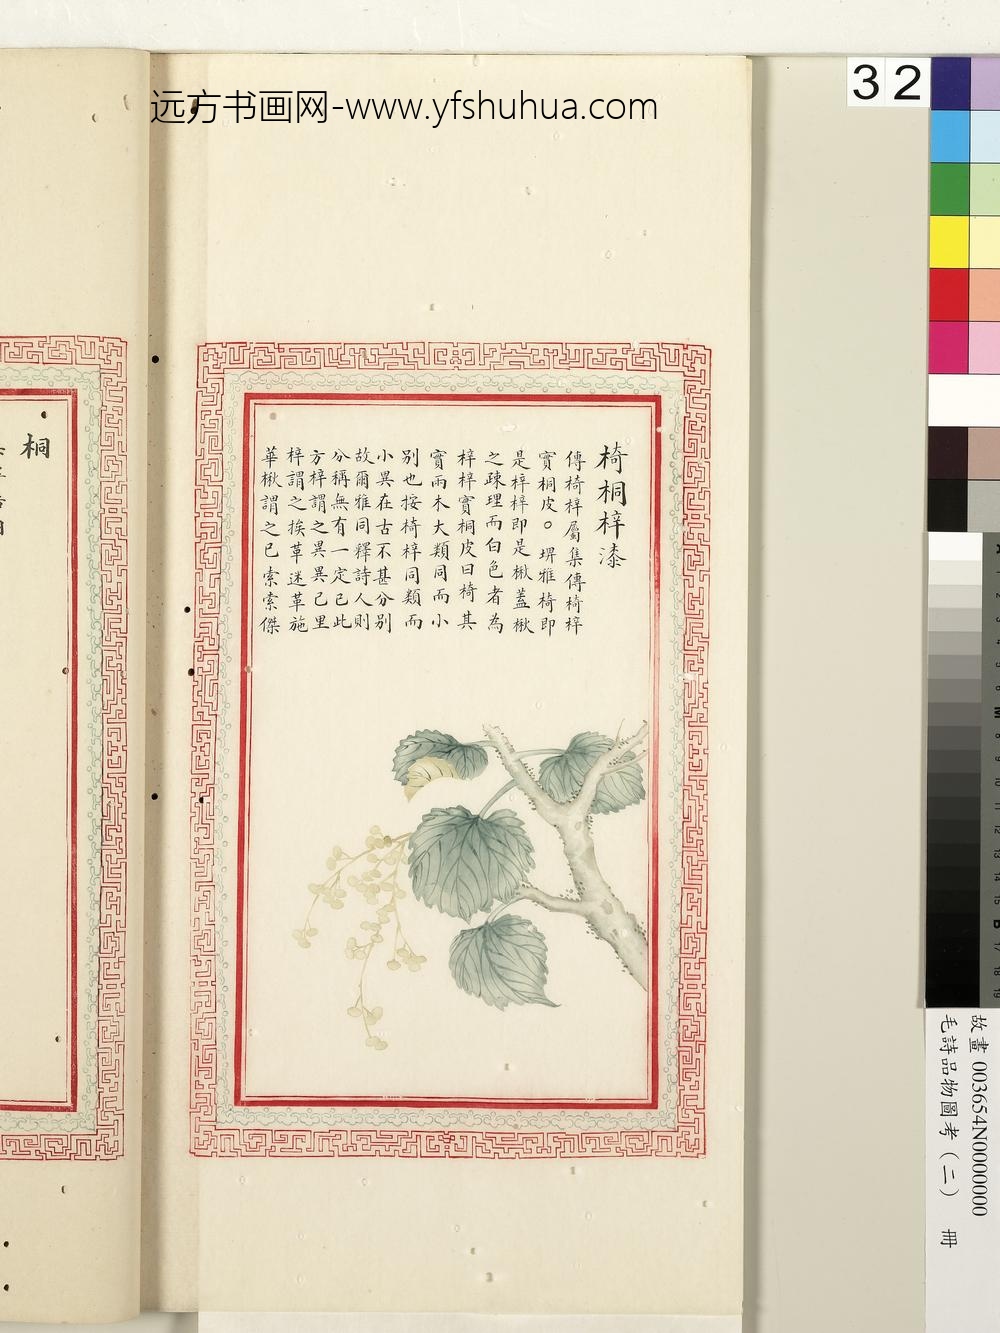 远方书画网-www.yfshuhua.com
32
椅桐梓漆
傳椅梓屬集傳椅梓
實桐皮○埤雅椅即
是梓梓即是楸蓋楸
之疎理而白色者為
梓梓實桐皮曰椅其
實兩木大類同而小
別也按椅梓同類而
小異在古不甚分別
故爾雅同釋詩人則
分稱無有一定已此
方梓謂之異異已里
梓謂之挨革迷革施
華楸謂之已索索傑
桐
故畫 003654N00000000
毛詩品物圖考（二） 冊